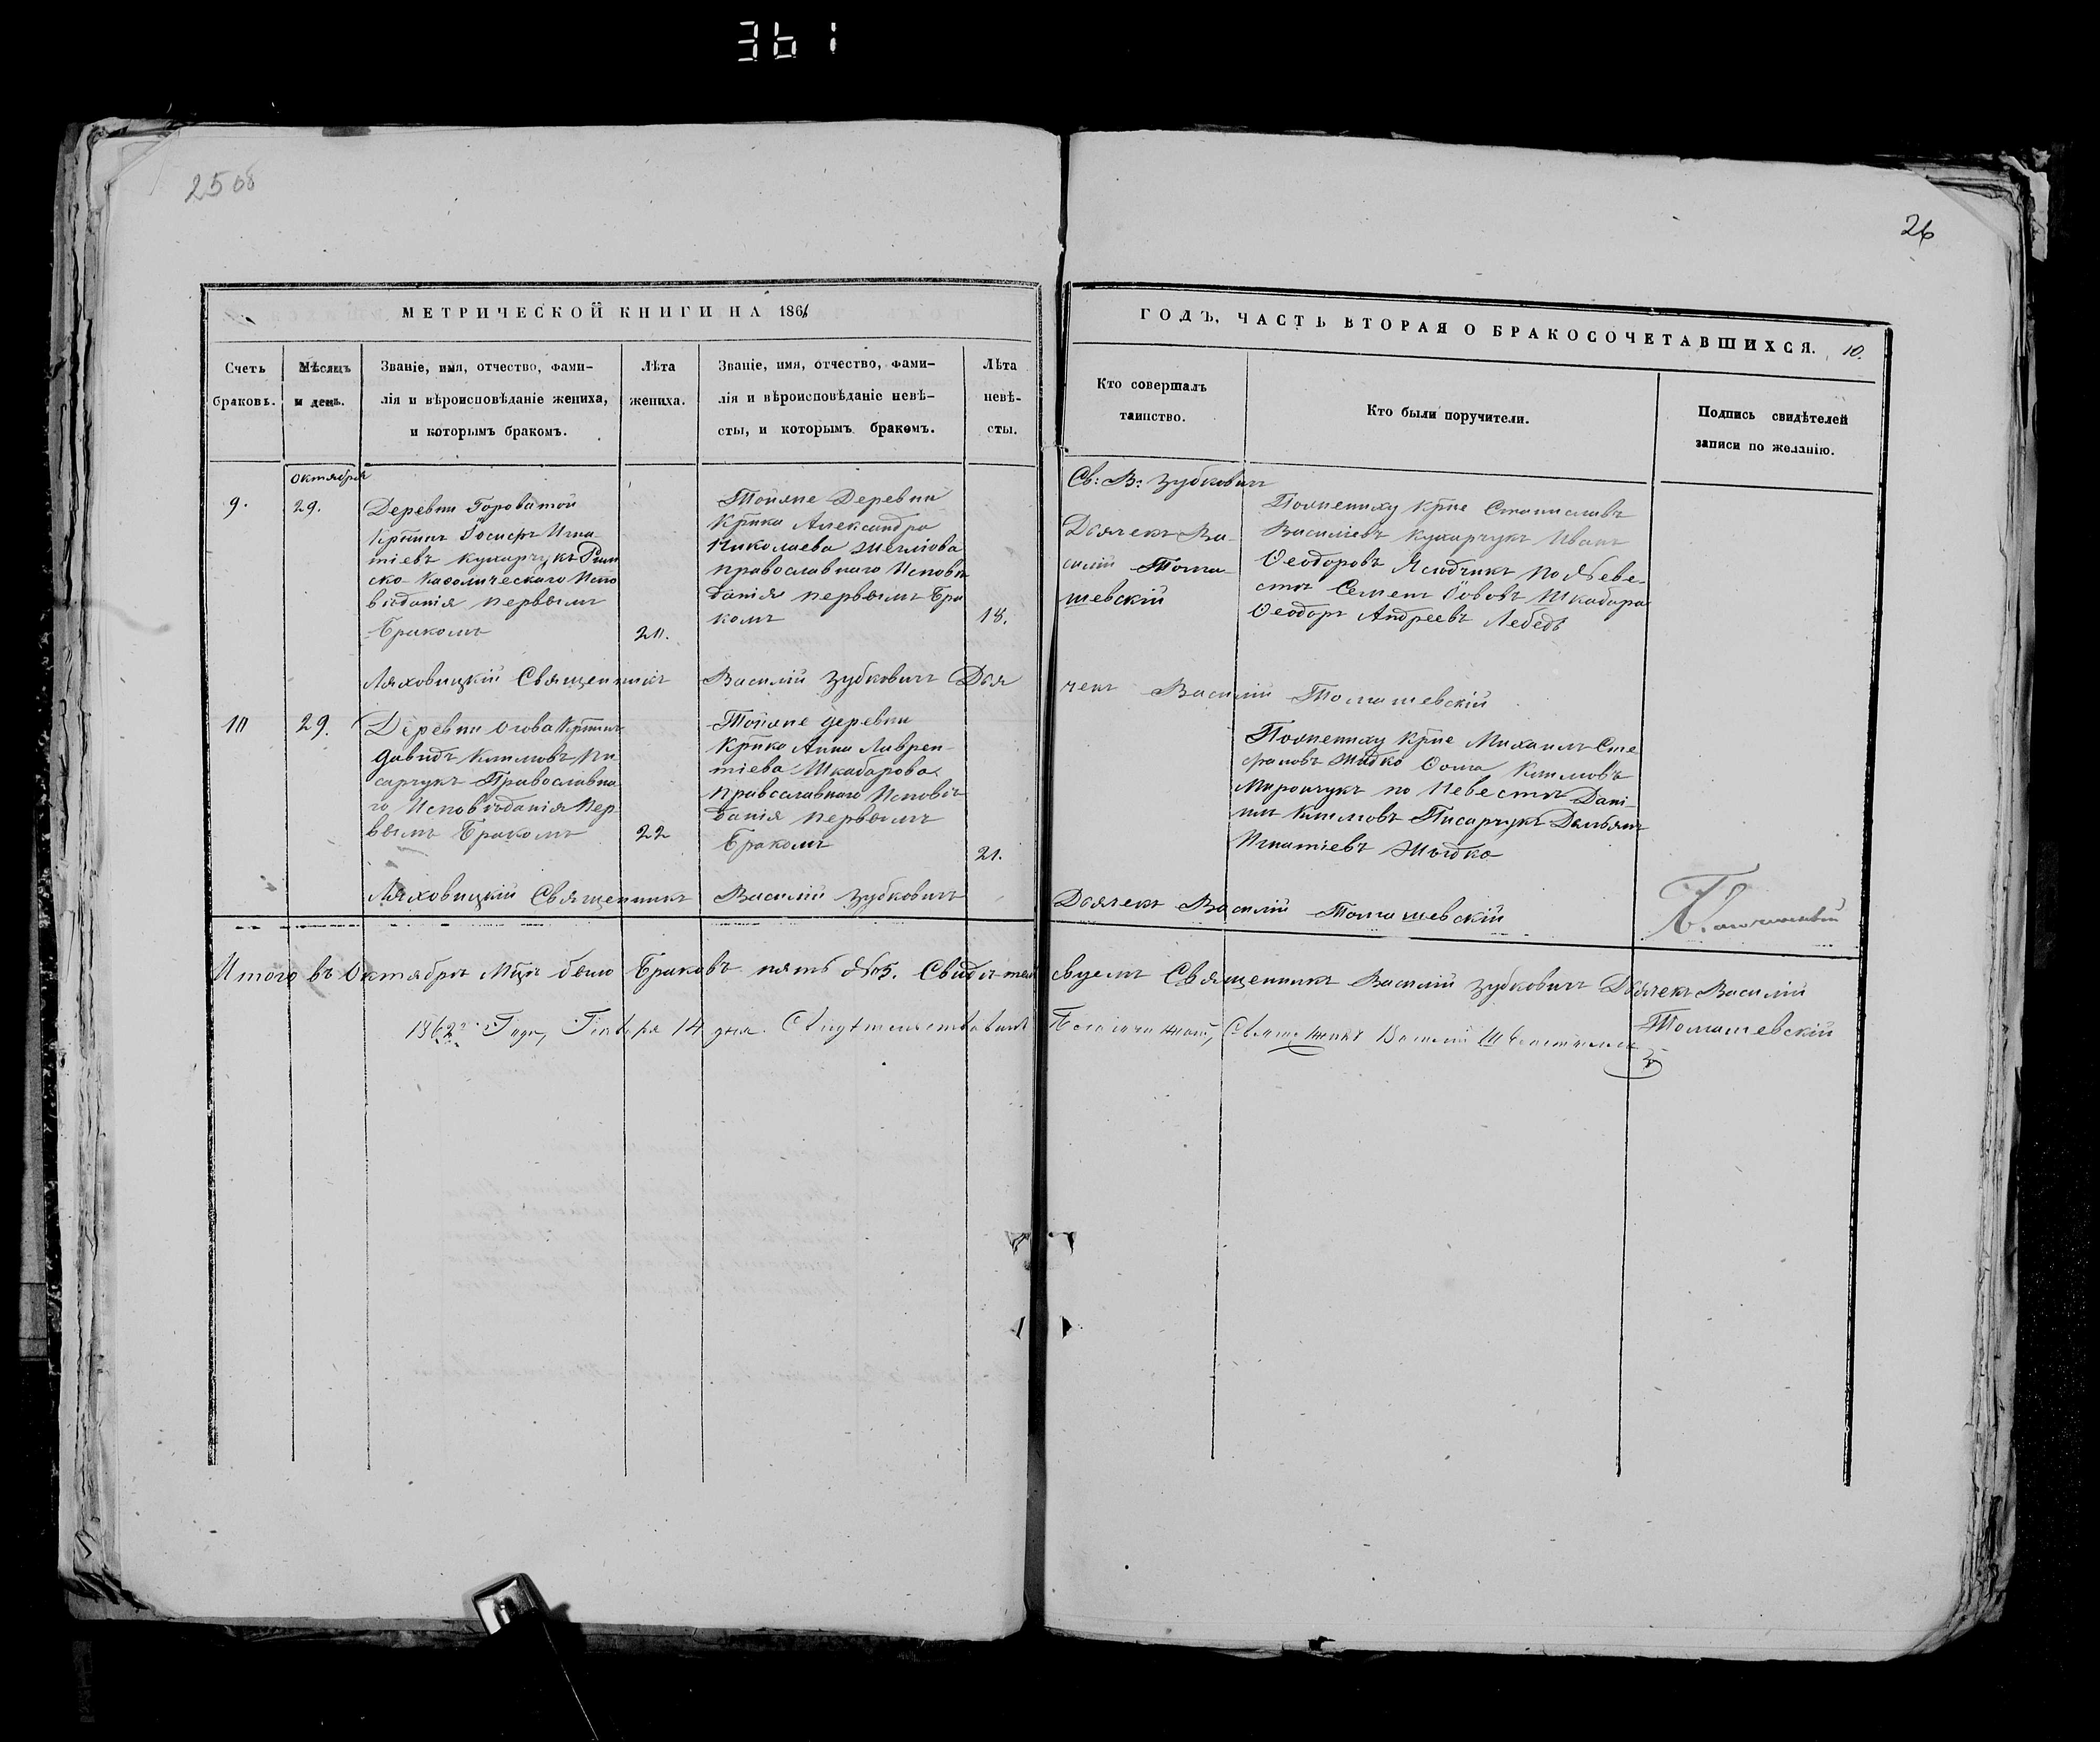 361
2508
26
МЕТРИЧЕСКОЙ КНИГИ НА 1861
ГОДЪ, ЧАСТЬ ВТОРАЯ О БРАКОСОЧЕТАВШИХСЯ. 10.
Счетъ
браковъ.
Мѣсяцъ
и день.
Званіе, имя, отчество, фами-
лія и вѣроисповѣданіе жениха,
и которымъ бракомъ.
Лѣта
жениха.
Званіе, имя, отчество, фами-
лія и вѣроисповѣданіе невѣ-
сты, и которымъ бракомъ.
Лѣта
невѣ-
сты.
Кто совершалъ
таинство.
Кто были поручители.
Подпись свидѣтелей
записи по желанію.
Октября
9.
29.
Деревни Гороватой
Кртнинъ Іосифъ Игна
тіевъ Кухарчукъ Рим
ско-Каѳолическаго Испо
вѣданія первымъ
Бракомъ
20.
Тойяже Деревни
Кртнка Александра
Николаева
православнаго Исповѣ
данія первымъ Бра
комъ
18.
Св: В: Зубковичъ
Дьячекъ Ва-
силій Тома-
шевскій
Пожениху Кртне Станиславъ
Василіевъ Кухарчукъ Иванъ
Ѳеодоровъ По Неве-
стѣ Семенъ Іововъ Шкабара
Ѳеодоръ Андреевъ Лебедь
Ляховицкій Священникъ Василій Зубковичъ Дья
чекъ Василій Томашевскій
10
29.
Деревни Огова Кртнинъ
Давидъ Климовъ Пи
сарчукъ Православна
го Исповѣданія Пер
вымъ Бракомъ
22
Тойяже деревни
Кртнка Анна Лаврен-
тіева Шкабарова
Православнаго Исповѣ
данія первымъ
Бракомъ
21.
Пожениху Кртне Михаилъ Сте
фановъ Жидко Ѳома Климовъ
Мирончукъ по Невестѣ Дани-
илъ Климовъ Писарчукъ Демьянъ
Игнатіевъ Жидко
Ляховицкій Священникъ Василій Зубковичъ
Дьячекъ Василій Томашевскій
Итого въ Октябрѣ Мцѣ было Браковъ пять №5. Свидѣтель
ствуемъ Священникъ Василій Зубковичъ Дьячекъ Василій
Томашевскій
1862 Года, Генваря 14 дня. Свидѣтельствовалъ
Благочинный, Священникъ Василій